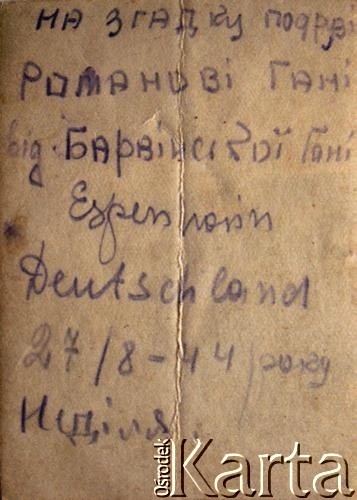 на згадку подрузі
Романові Гані
від Барвінскої Гані
Espenhain
Deutschland
27/8-44 року
Неділя.
Ośrodek
Karta